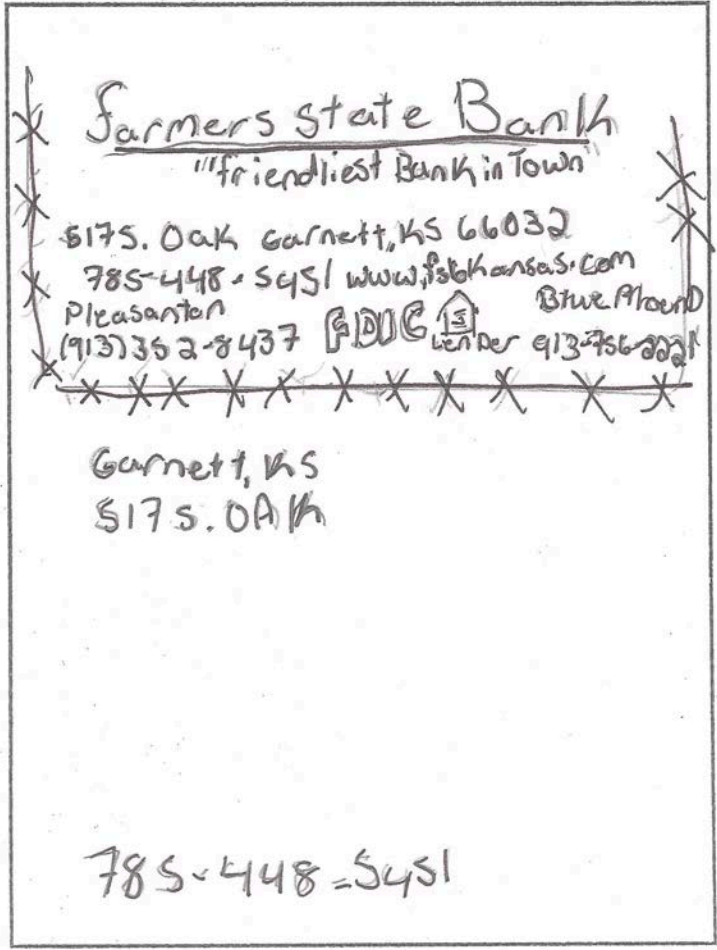 Farmers State Bank
"friendliest Bank in Town"
517 S. Oak Garnett, KS 66032
785-448-5451 www.fsbkansas.com
Pleasanton
(913) 352-8437 FDIC Lender
Blue Mound
913-756-2221
Garnett, KS
517 S. OAK
785-448-5451